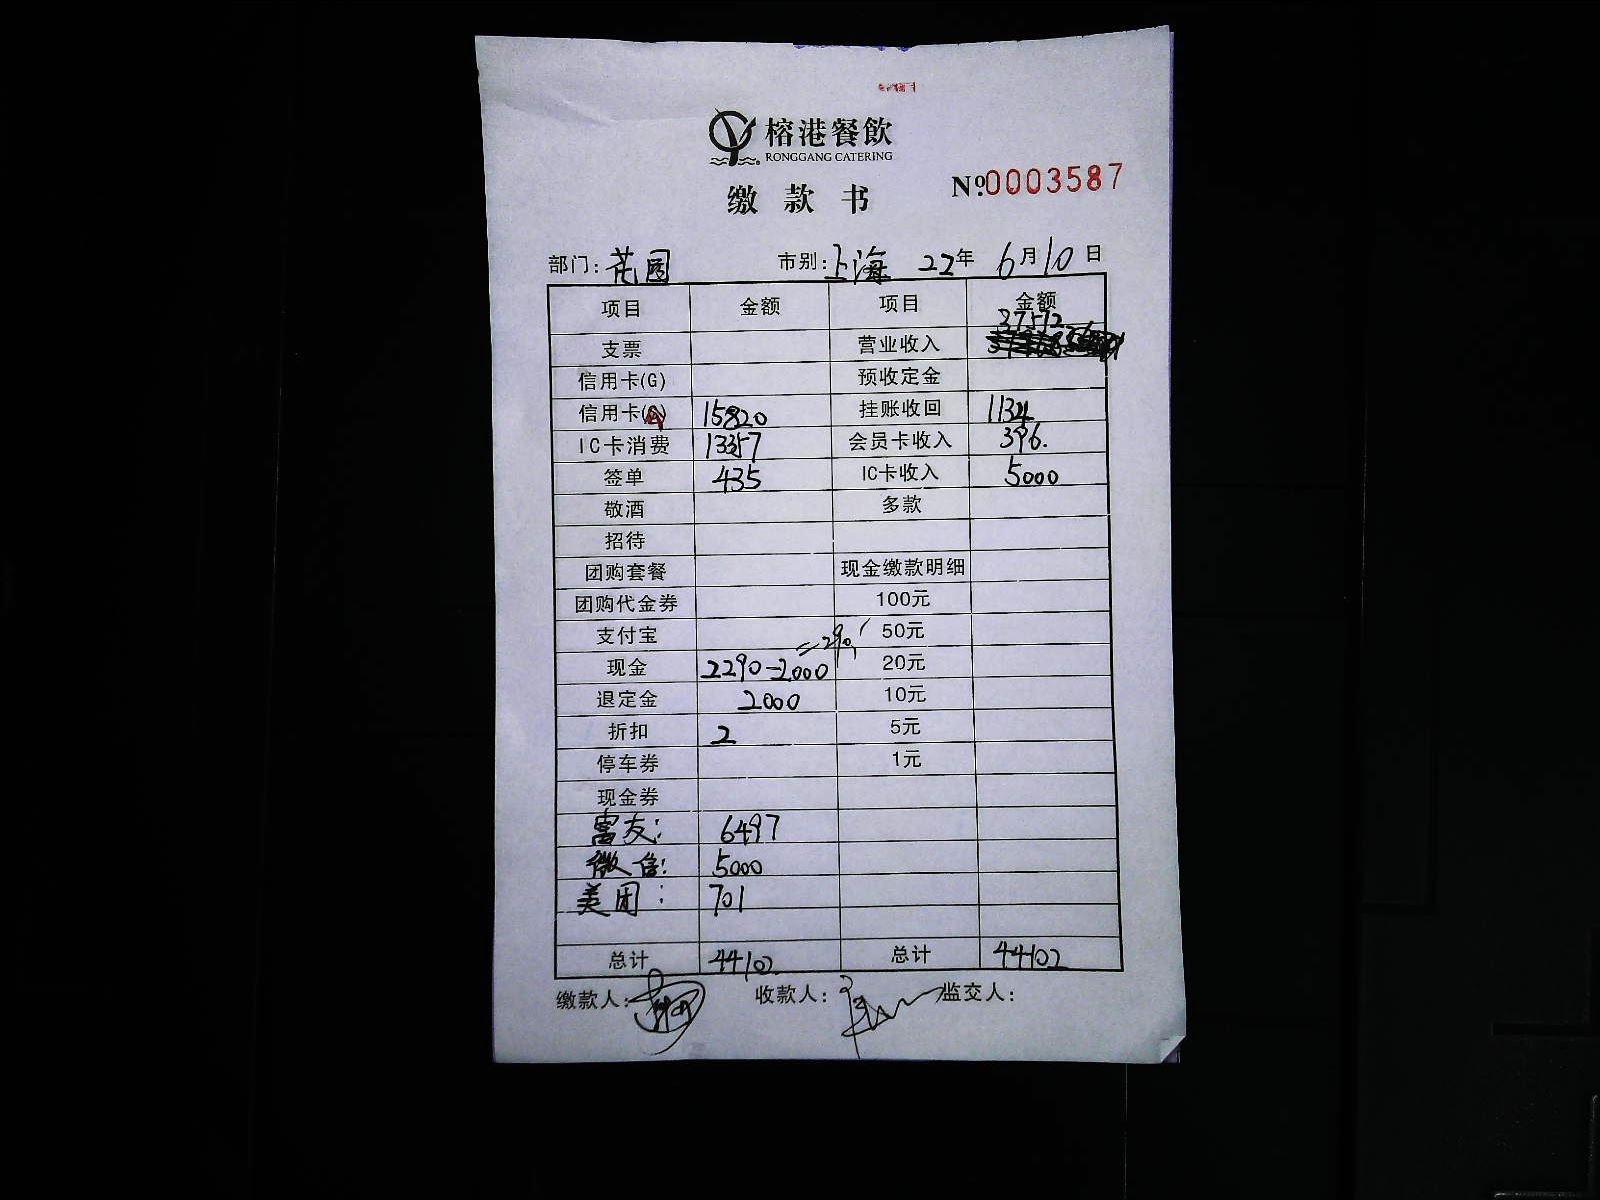 榕港餐飲
RONGGANG CATERING
缴款书
Nº:0003587
部门: 花园 市别: 上海 22年 6月10日
项目 金额 项目 金额
支票 营业收入 37572
信用卡(G) 预收定金
信用卡 15820 挂账收回 1134
IC卡消费 13357 会员卡收入 396.
签单 435 IC卡收入 5000
敬酒 多款
招待
团购套餐 现金缴款明细
团购代金券 100元
支付宝 50元
现金 2290-2000 =290 20元
退定金 2000 10元
折扣 2 5元
停车券 1元
现金券
富友: 6497
微信: 5000
美团: 701
总计 44102 总计 44102
缴款人: 收款人: 监交人: